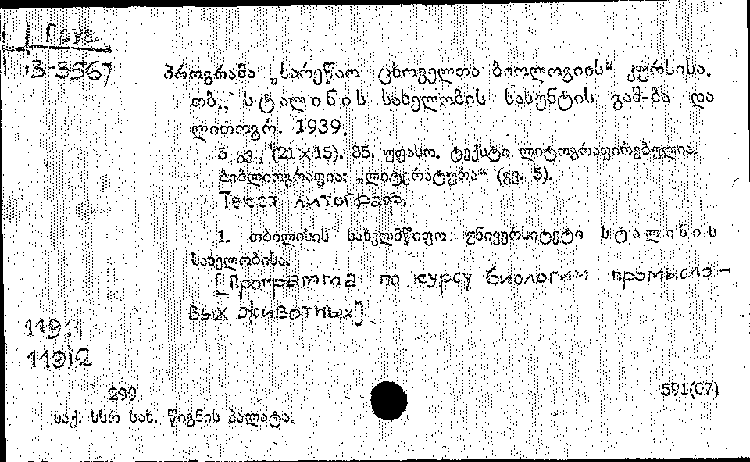 Груз.
3-3367
პროგრამა „სარეწაო ცხოველთა ბიოლოგიის“ კურსისა.
თბ., სტალინის სახელობის სახუნტის გამ-ბა და
ლითოგრ. 1939.
5 გვ., (21×15). 85, უფასო. ტექსტი ლიტოგრაფირებულია.
ბიბლიოგრაფია: „ლიტერატურა“ (გვ. 5).
Текст литограф.
1. თბილისის სახელმწიფო უნივერსიტეტი სტალინის
სახელობისა.
[Программа по курсу биологии промысло-
вых животных]
119
11912
299
591(07)
საქ. სსრ სახ. წიგნის პალატა.